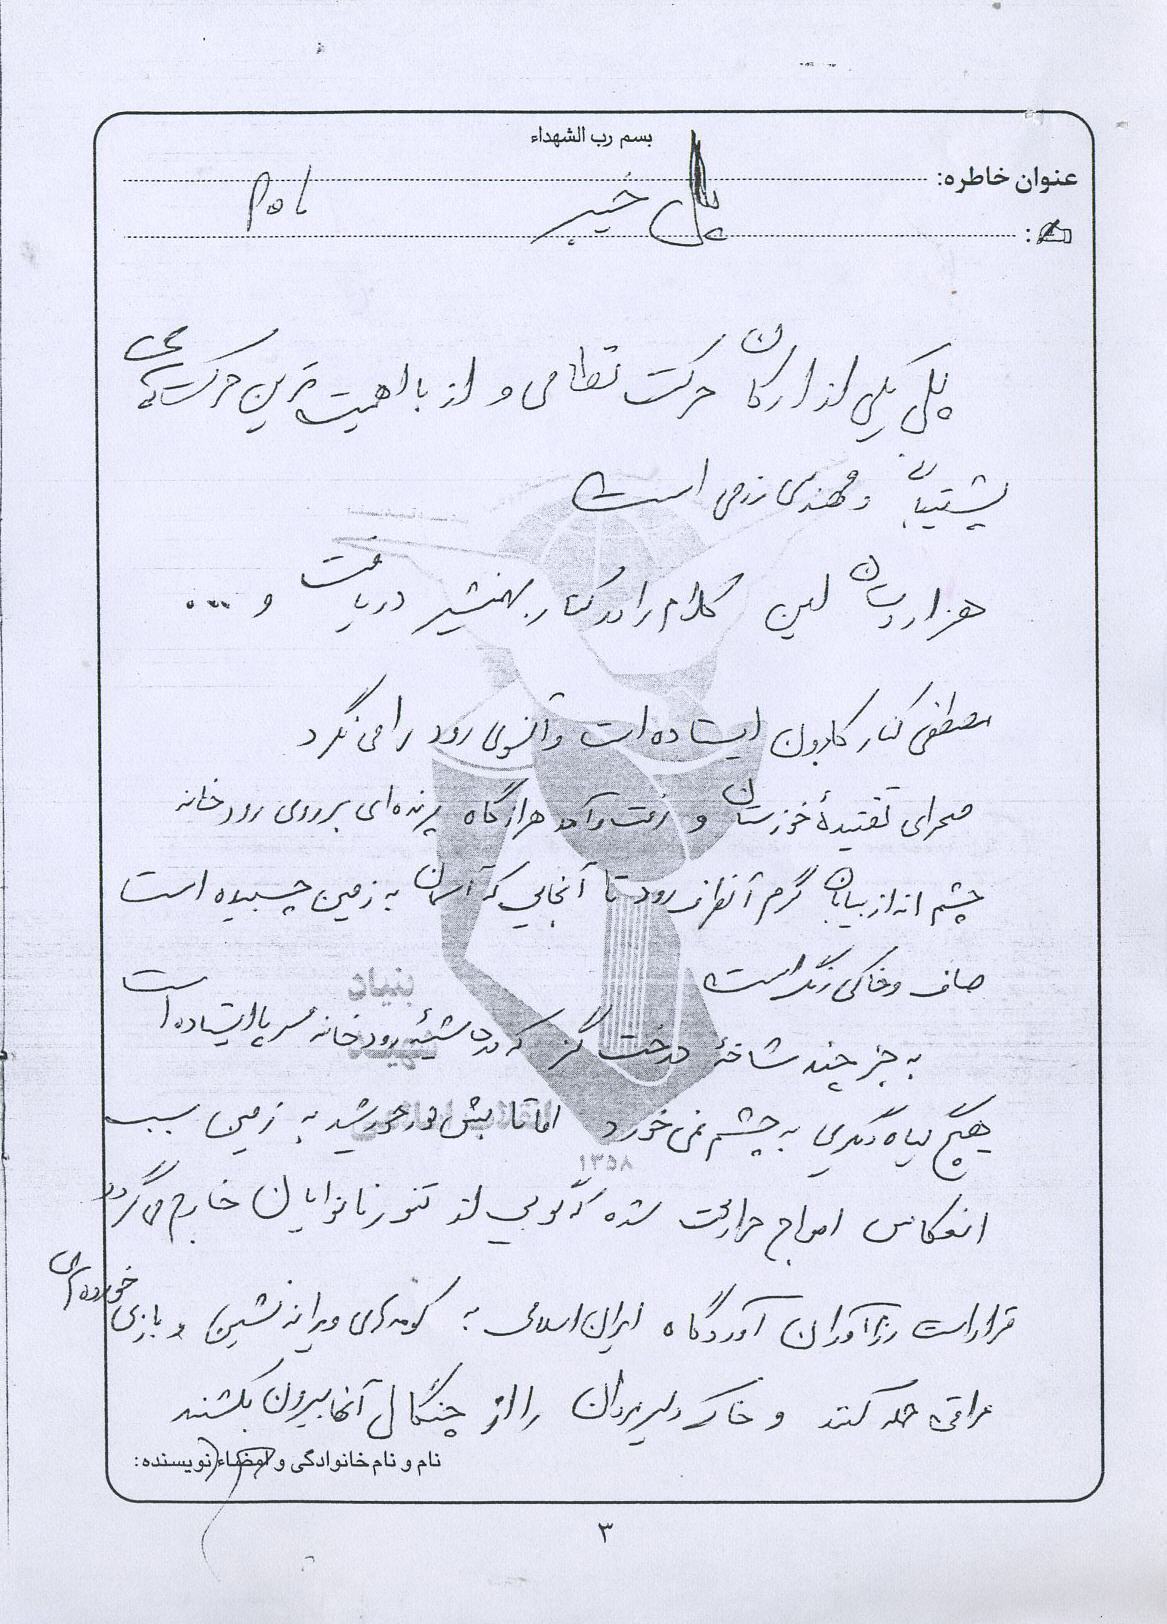 بسم رب الشهداء
عنوان خاطره:
پل خیبر
پل یکی از ارکان حرکت نظامی و از بااهمیت ترین حرکت های
پشتیبانی و مهندسی رزمی است
هزار پیمان این کلام را در کنار بهمنشیر دریافت و ...
مصطفی کنار کارون ایستاده است و آنسوی رود را می نگرد
صحرای تفتیدهٔ خوزستان و رفت و آمد هرازگاه پرنده ای بر روی رودخانه
چشم انداز بیابان گرم آنطرف رود تا آنجایی که آسمان به زمین چسبیده است
صاف و خاکی رنگ است
به جز چند شاخهٔ درخت گز که در حاشیهٔ رودخانه سر پا ایستاده است
هیچ گیاه دیگری به چشم نمی خورد اما تابش نور خورشید به زمین سبب
انعکاس امواج حرارت شده که گویی از تنور نانوایان خارج می گردد
قرار است رزم آوران آوردگاه ایران اسلامی به کومه های ویرانه نشین و بازی خورده های
عراقی حمله کنند و خاک دلیر مردان را از چنگال آنها بیرون بکشند
نام و نام خانوادگی و امضاء نویسنده:
۳
بنیاد
شهید
انقلاب اسلامی
۱۳۵۸